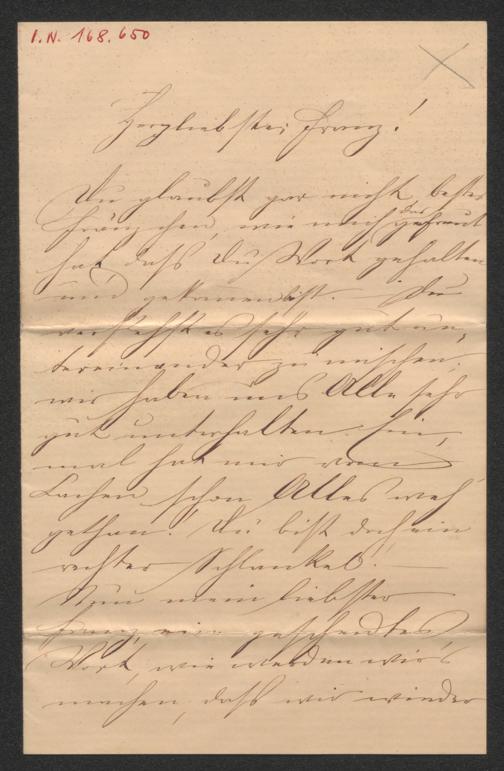 I.N. 168.650
Herzliebster Franz!
Du glaubst gar nicht, bester
Fränzchen, wie mich das gefreut
hat dass Du Wort gehalten
und gekommen bist. Du
verstehst es sehr gut un-
tereinander zu mischen,
wir haben uns Alle sehr
gut unterhalten. Ein-
mal hat mir vom
Lachen schon Alles weh
gethan! Du bist doch ein
rechter Schlankel!
Nun mein liebster
Franz, ein gescheidtes
Wort, wie werden wir's
machen, dass wir wieder